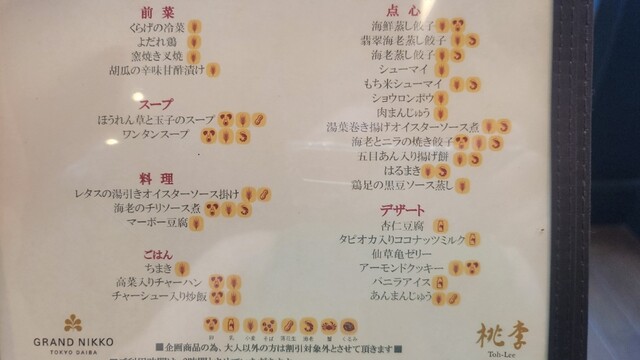 前菜
くらげの冷菜
よだれ鶏
窯焼き叉焼
胡瓜の辛味甘酢漬け
スープ
ほうれん草と玉子のスープ
ワンタンスープ
料理
レタスの湯引きオイスターソース掛け
海老のチリソース煮
マーボー豆腐
ごはん
ちまき
高菜入りチャーハン
チャーシュー入り炒飯
点心
海鮮蒸し餃子
翡翠海老蒸し餃子
海老蒸し餃子
シューマイ
もち米シューマイ
ショウロンポウ
肉まんじゅう
湯葉巻き揚げオイスターソース煮
海老とニラの焼き餃子
五目あん入り揚げ餅
はるまき
鶏足の黒豆ソース蒸し
デザート
杏仁豆腐
タピオカ入りココナッツミルク
仙草亀ゼリー
アーモンドクッキー
バニラアイス
あんまんじゅう
卵 乳 小麦 そば 落花生 海老 蟹 くるみ
■企画商品の為、大人以外の方は割引対象外とさせて頂きます■
GRAND NIKKO
TOKYO DAIBA
桃李
Toh-Lee